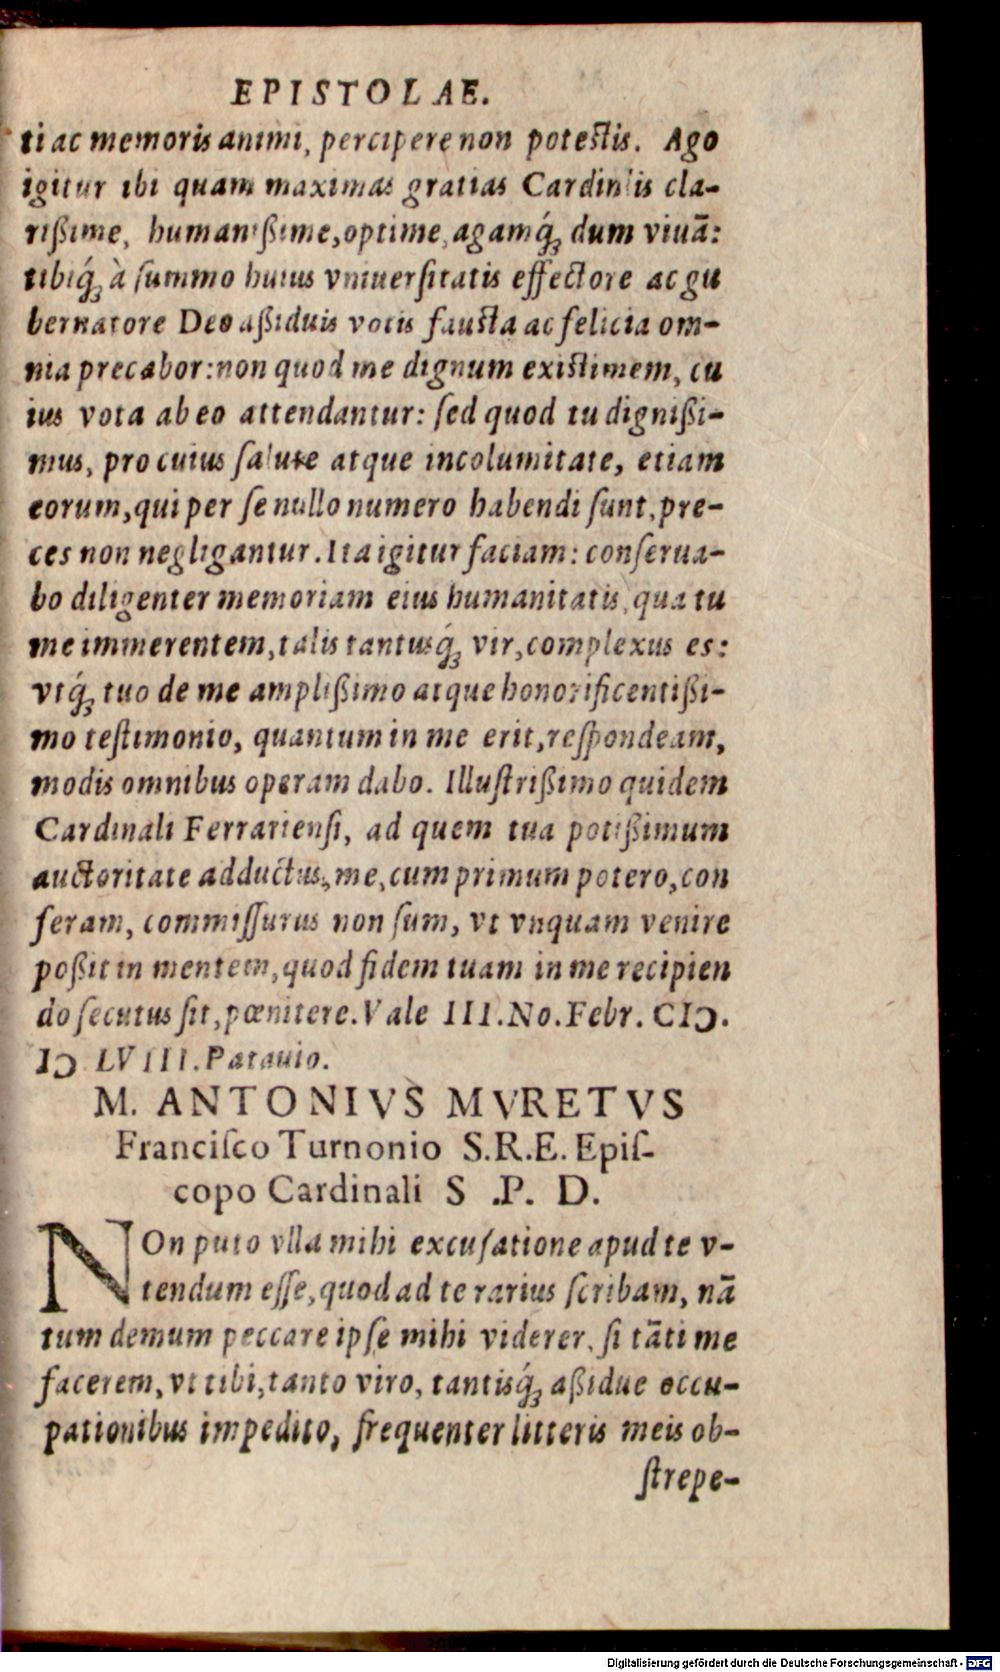 EPISTOLAE.
ti ac memoris animi, percipere non potestis. Ago
igitur ibi quam maximas gratias Cardinalis cla-
rißime, humanißime, optime, agamq́; dum viuã:
tibiq́; à ſummo huius vniuerſitatis effectore ac gu
bernatore Deo aßiduis votis fausta ac felicia om-
nia precabor: non quod me dignum existimem, cu
ius vota ab eo attendantur: ſed quod tu dignißi-
mus, pro cuius ſalute atque incolumitate, etiam
eorum, qui per ſe nullo numero habendi ſunt, pre-
ces non negligantur. Ita igitur faciam: conſerua-
bo diligenter memoriam eius humanitatis, qua tu
me immerentem, talis tantusq́; vir, complexus es:
vtq́; tuo de me amplißimo atque honorificentißi-
mo teſtimonio, quantum in me erit, reſpondeam,
modis omnibus operam dabo. Illuſtrißimo quidem
Cardinali Ferrarienſi, ad quem tua potißimum
auctoritate adductus, me, cum primum potero, con
feram, commiſſurus non ſum, vt vnquam venire
poßit in mentem, quod fidem tuam in me recipien
do ſecutus ſit, pœnitere. Vale III. No. Febr. CIↃ.
IↃ LVIII. Patauio.
M. ANTONIVS MVRETVS
Franciſco Turnonio S.R.E. Epiſ-
copo Cardinali S .P. D.
NOn puto vlla mihi excuſatione apud te v-
tendum eſſe, quod ad te rarius ſcribam, nã
tum demum peccare ipſe mihi viderer, ſi tãti me
facerem, vt tibi, tanto viro, tantisq́; aßidue occu-
pationibus impedito, frequenter litteris meis ob-
ſtrepe-
Digitalisierung gefördert durch die Deutsche Forschungsgemeinschaft - DFG